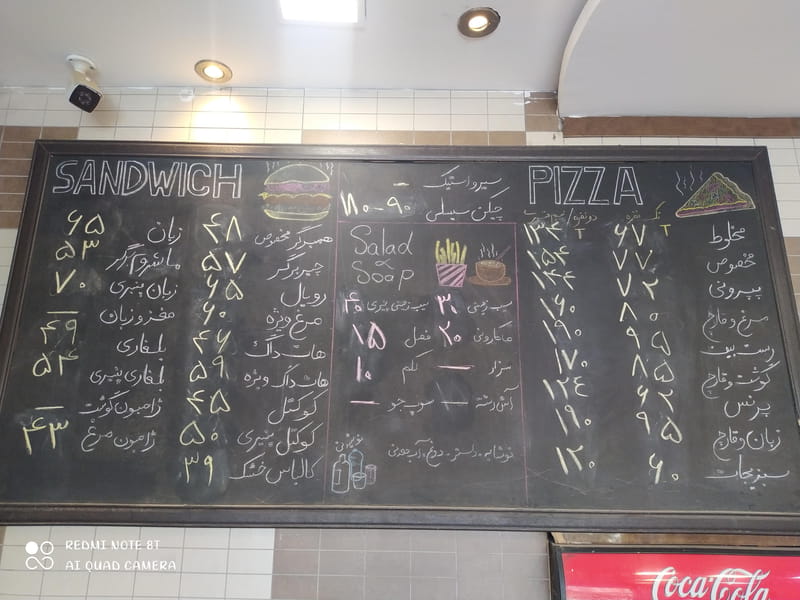 SANDWICH
همبرگر مخصوص ۴۸
چیزبرگر ۵۷
رویال ۶۵
مرغ ویژه ۶۰
هات داگ ۴۶
هات داگ ویژه ۵۹
کوکتل ۴۵
کوکتل پنیری ۵۰
کالباس خشک ۳۹
زبان ۶۵
ماشروم برگر ۵۳
زبان پنیری ۷۰
مغز و زبان —
بلغاری ۴۹
بلغاری پنیری ۵۴
ژامبون گوشت —
ژامبون مرغ ۴۳
سیر و استیک —
چیکن سیسلی ۹۰-۱۱۰
Salad
&
Soap
سیب زمینی ۳۰ سیب زمینی پنیری ۴۰
ماکارونی ۲۰ فصل ۱۵
سزار — کلم ۱۰
آش رشته — سوپ جو —
نوشابه . دلستر . دوغ . آب معدنی
PIZZA
تک نفره دونفره
مخلوط ۶۷ ۱۳۴
مخصوص ۷۷ ۱۵۴
پپرونی ۷۲ ۱۴۴
مرغ و قارچ ۸۰ ۱۶۰
رست بیف ۹۵ ۱۹۰
گوشت و قارچ ۸۵ ۱۷۰
پرنس ۶۲ ۱۲۴
زبان و قارچ ۹۵ ۱۹۰
سبزیجات ۶۰ ۱۲۰
Coca-Cola
REDMI NOTE 8T
AI QUAD CAMERA